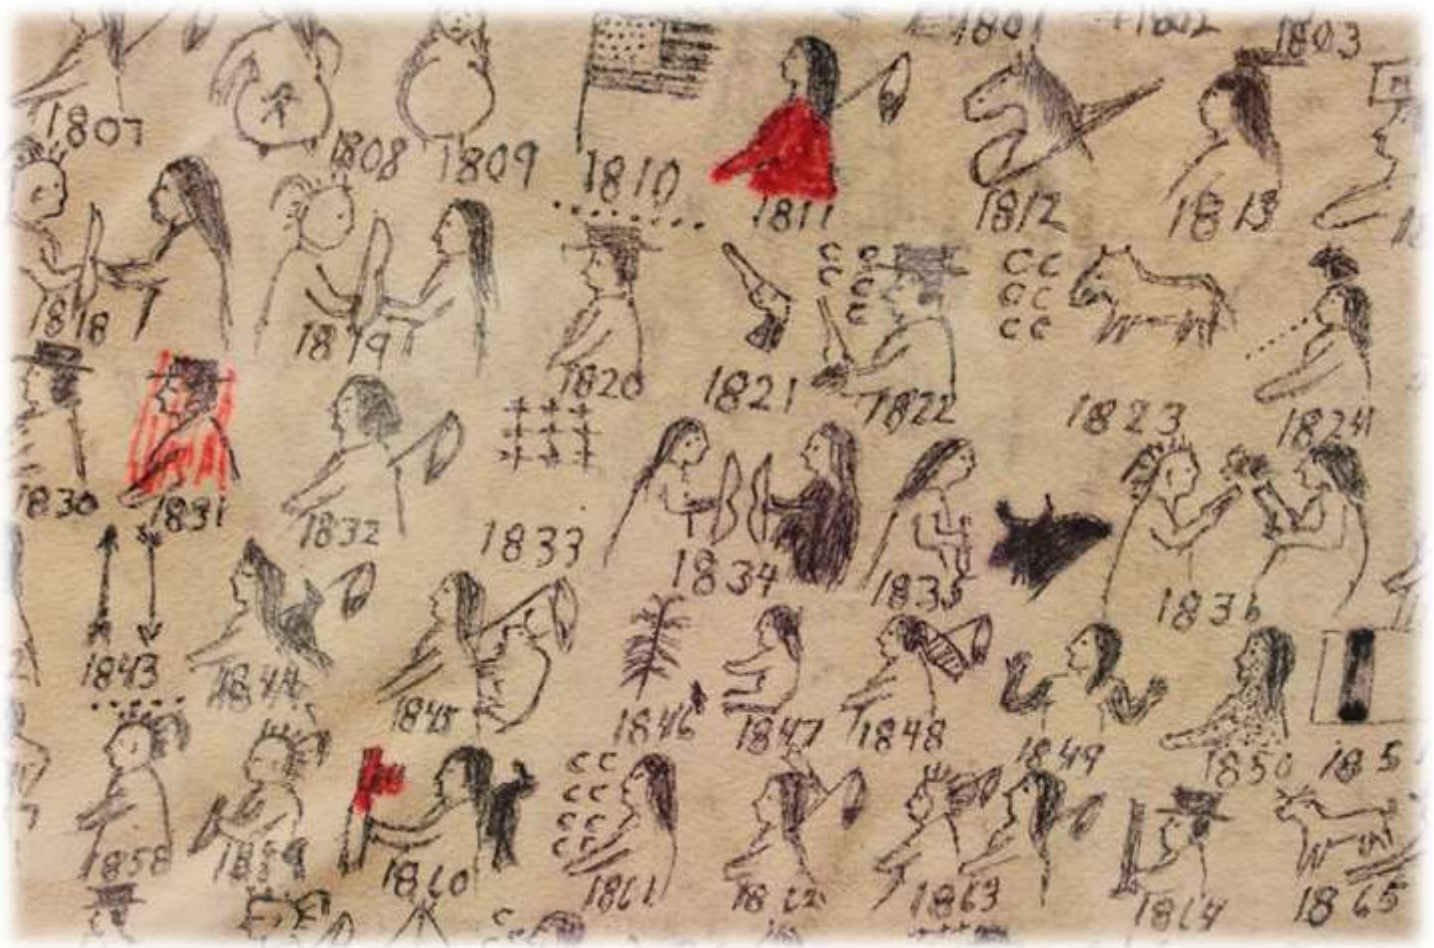 1801 1802 1803
1807 1808 1809 1810 1811 1812 1813
1818 1819 1820 1821 1822 1823 1824
1830 1831 1832 1833 1834 1835 1836
1843 1844 1845 1846 1847 1848 1849 1850 185
1858 1859 1860 1861 1862 1863 1864 1865